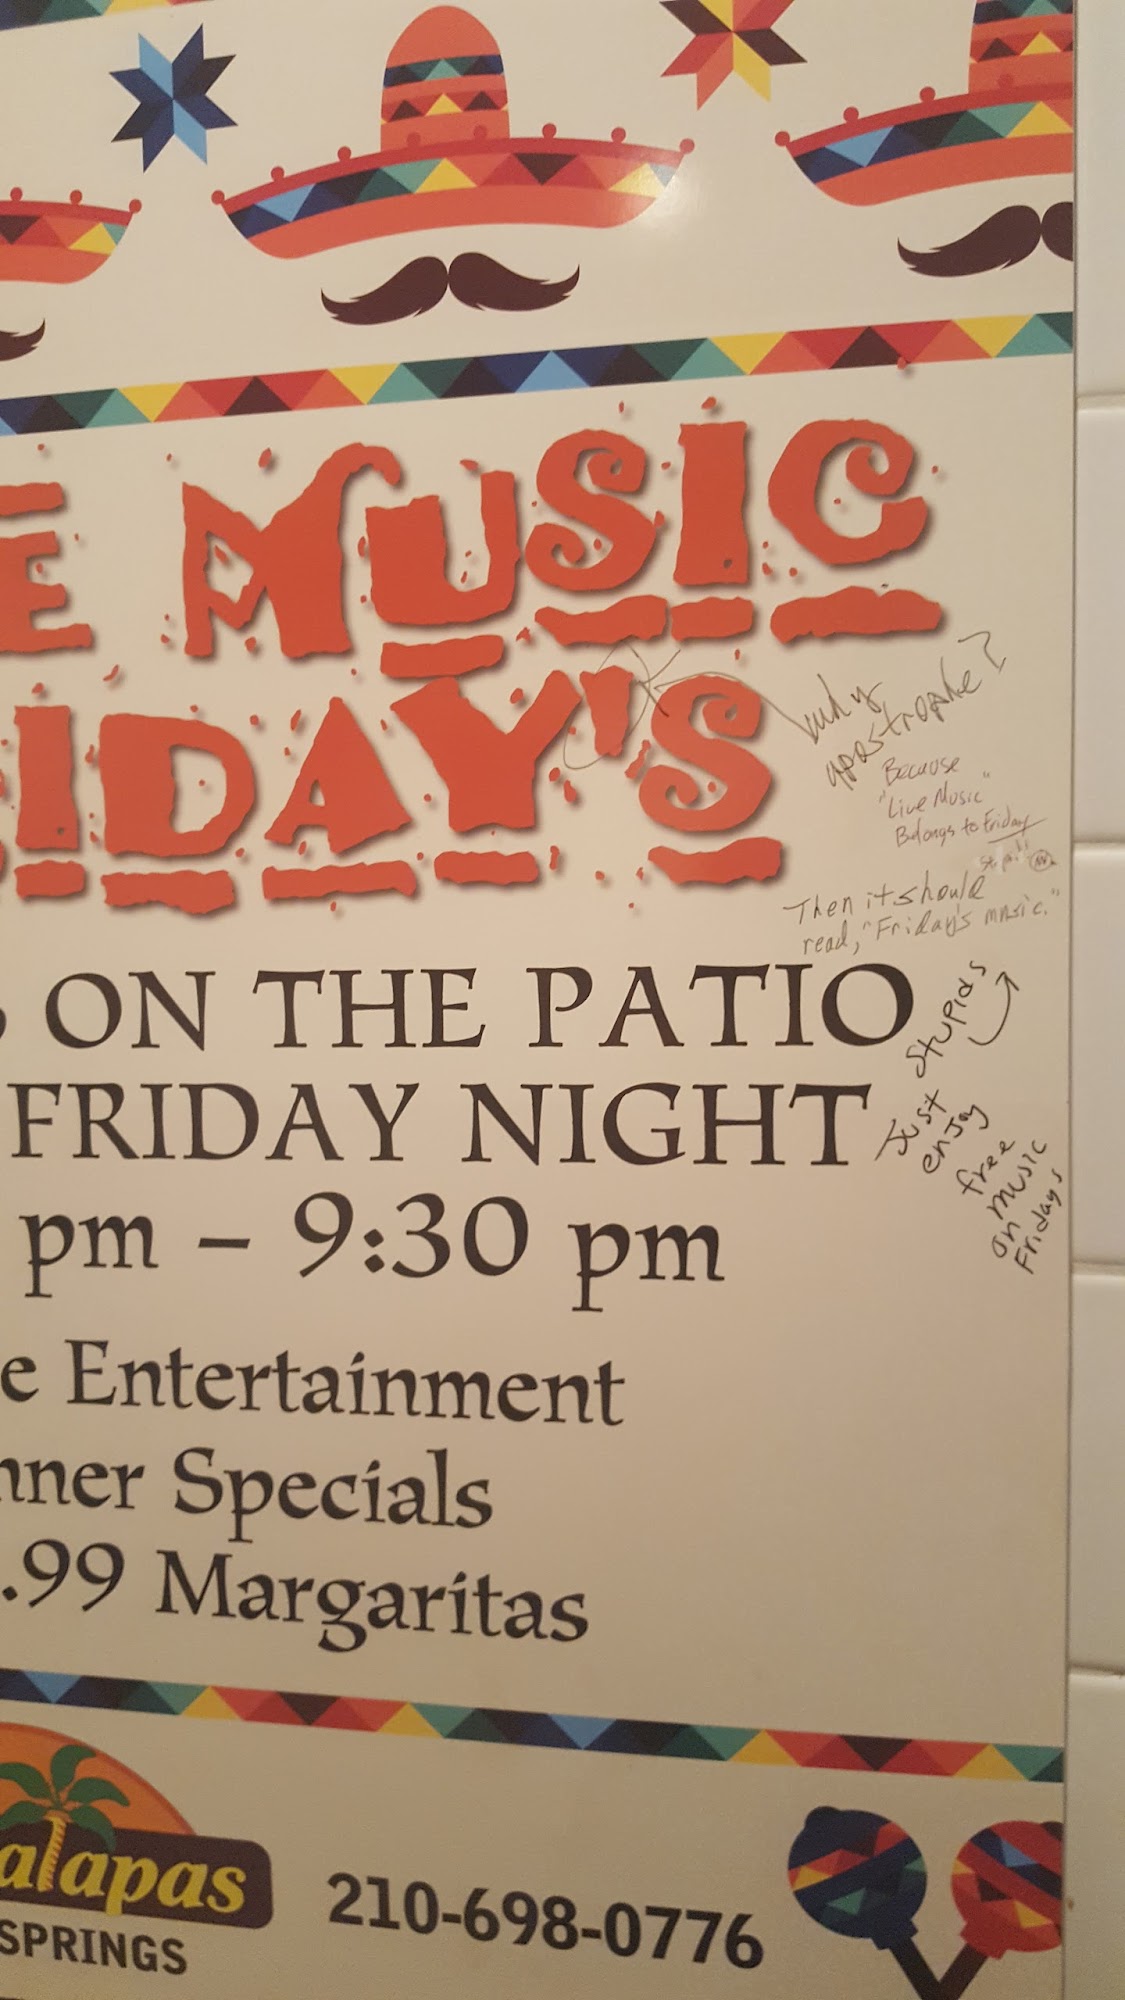 E MUSIC
IDAY'S
why
apostrophe?
Because
"Live Music"
Belongs to Friday
Then it should
read, "Friday's music."
Stupids
Just
enjoy
free
music
on
Fridays
ON THE PATIO
FRIDAY NIGHT
pm – 9:30 pm
e Entertainment
nner Specials
.99 Margaritas
alapas
SPRINGS
210-698-0776